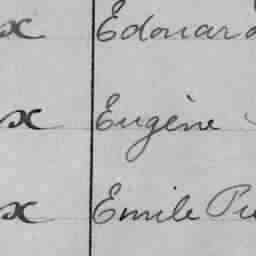 x Edouard
x Eugène
x Emile